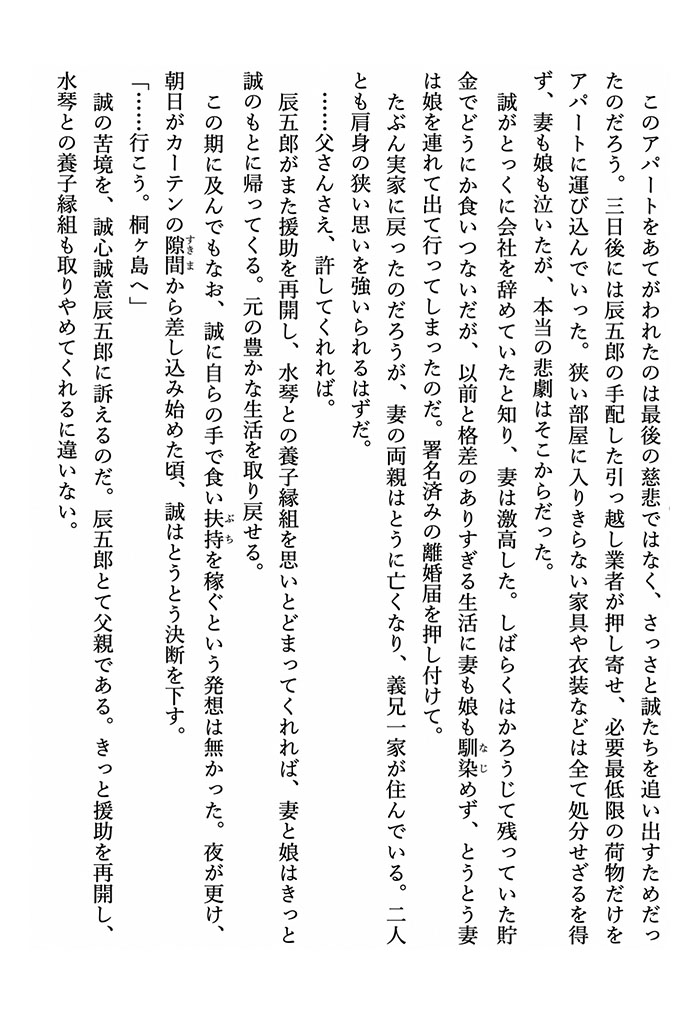 このアパートをあてがわれたのは最後の慈悲ではなく、さっさと誠たちを追い出すためだっ
たのだろう。三日後には辰五郎の手配した引っ越し業者が押し寄せ、必要最低限の荷物だけを
アパートに運び込んでいった。狭い部屋に入りきらない家具や衣装などは全て処分せざるを得
ず、妻も娘も泣いたが、本当の悲劇はそこからだった。
誠がとっくに会社を辞めていたと知り、妻は激高した。しばらくはかろうじて残っていた貯
金でどうにか食いつないだが、以前と格差のありすぎる生活に妻も娘も馴染めず、とうとう妻
は娘を連れて出て行ってしまったのだ。署名済みの離婚届を押し付けて。
たぶん実家に戻ったのだろうが、妻の両親はとうに亡くなり、義兄一家が住んでいる。二人
とも肩身の狭い思いを強いられるはずだ。
……父さんさえ、許してくれれば。
辰五郎がまた援助を再開し、水琴との養子縁組を思いとどまってくれれば、妻と娘はきっと
誠のもとに帰ってくる。元の豊かな生活を取り戻せる。
この期に及んでもなお、誠に自らの手で食い扶持を稼ぐという発想は無かった。夜が更け、
朝日がカーテンの隙間から差し込み始めた頃、誠はとうとう決断を下す。
「……行こう。桐ヶ島へ」
誠の苦境を、誠心誠意辰五郎に訴えるのだ。辰五郎とて父親である。きっと援助を再開し、
水琴との養子縁組も取りやめてくれるに違いない。